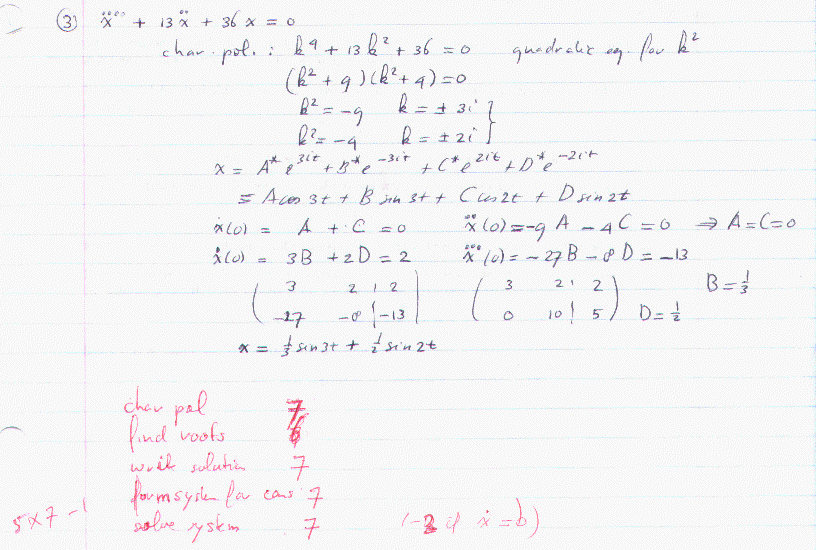 ③ ẍ̈ + 13 ẍ + 36 x = 0
char. pol. : k⁴ + 13 k² + 36 = 0 quadratic eq. for k²
(k² + 9)(k² + 4) = 0
k² = -9 k = ± 3i }
k² = -4 k = ± 2i }
x = A* e^{3it} + B* e^{-3it} + C* e^{2it} + D* e^{-2it}
= A cos 3t + B sin 3t + C cos 2t + D sin 2t
x(0) = A + C = 0 ẍ(0) = -9 A - 4 C = 0 ⇒ A = C = 0
ẋ(0) = 3B + 2D = 2 x⃛(0) = -27 B - 8 D = -13
( 3 2 | 2 ) ( 3 2 | 2 ) B = 1/3
( -27 -8 | -13 ) ( 0 10 | 5 ) D = 1/2
x = 1/3 sin 3t + 1/2 sin 2t
char pol 7
find roots 6
write solution 7
form system for cons 7
5×7 - 1 solve system 7 (-2 if ẋ = b)